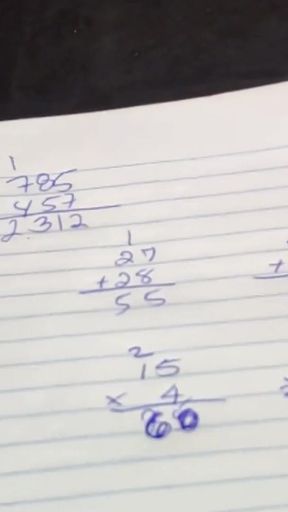 1
785
457
2312
1
27
+28
55
2
15
× 4
60
+